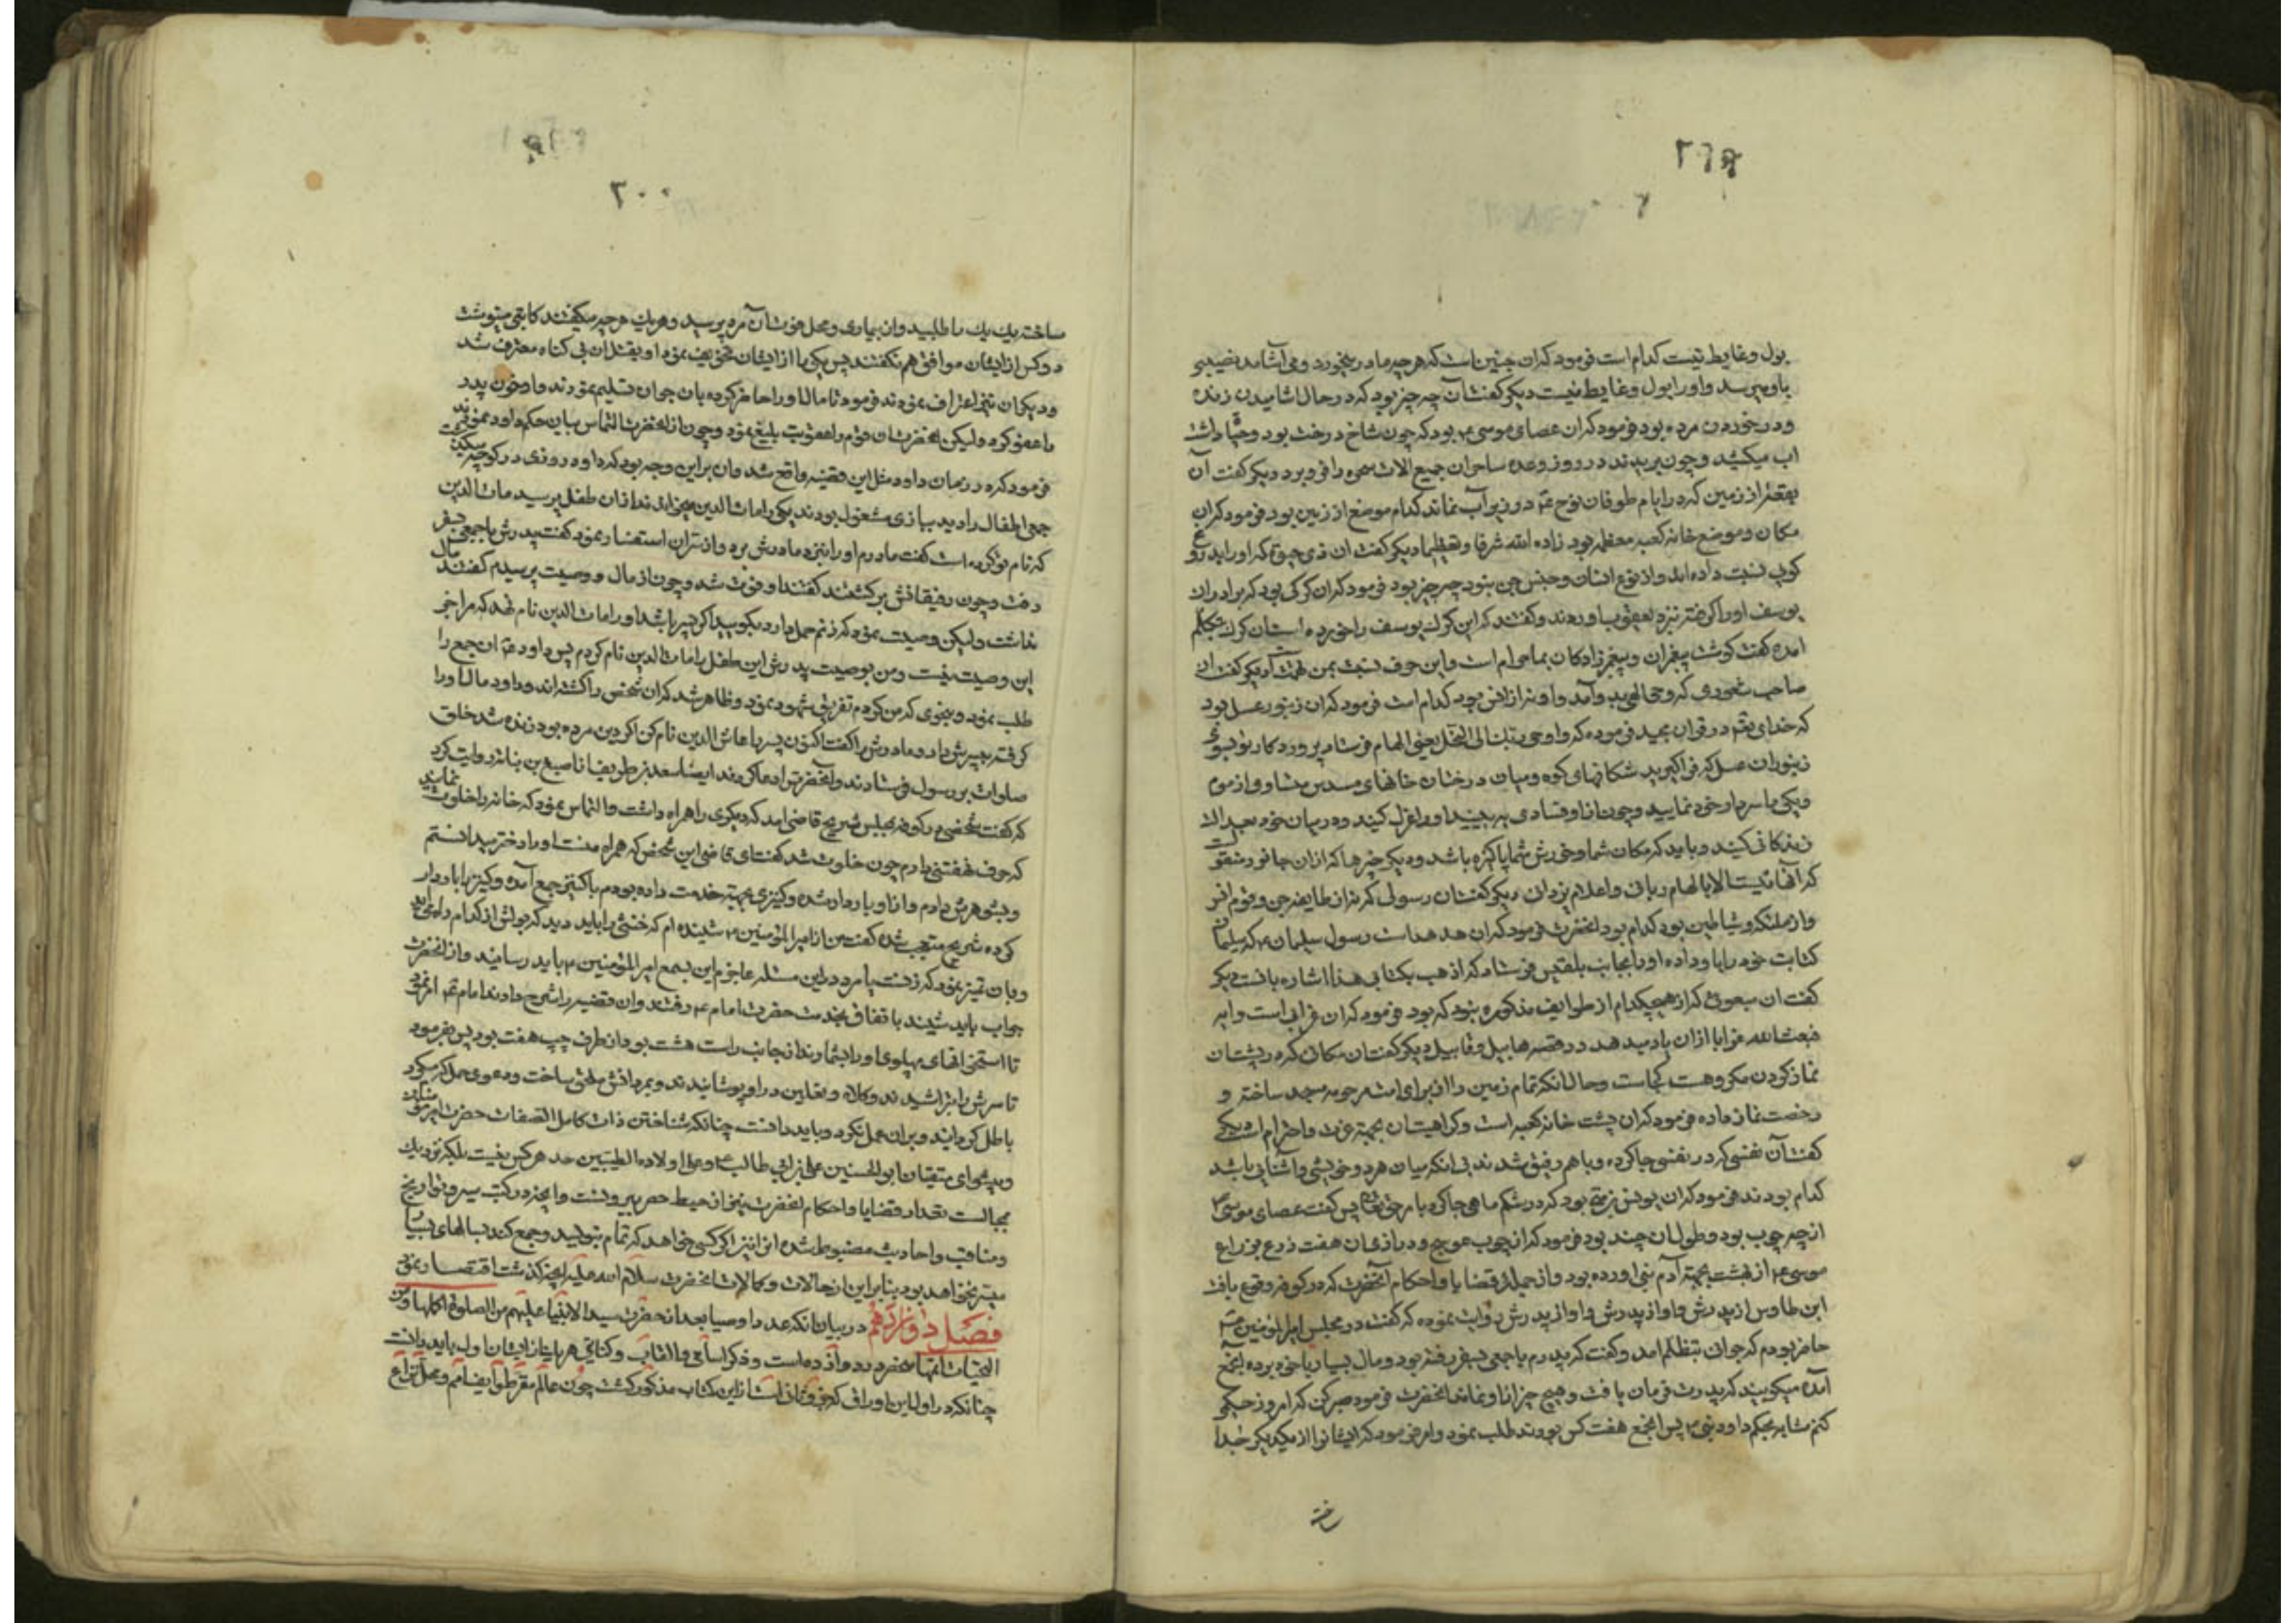 بول و غایط نیست کدام است فرمود که آن جنین است که هر چه مادر میخورد و می آشامد نصیبی
باو میرسد و او را بول و غایط نیست دیگر گفت آن چه چیز بود که در حال اشامیدن زنده
و در خوردن مرده بود فرمود که آن عصای موسی بود که چون شاخ درخت بود و حیات داشت
اب میکشید و چون بریدند در روز وعده ساحران جمیع الات سحره را فرو برد دیگر گفت آن
بقعه از زمین که در ایام طوفان نوح در زیر آب نماند کدام موضع از زمین بود فرمود که آن
مکان و موضع خانه کعبه معظمه بود زاده الله شرفا و تعظیما دیگر گفت ان ذی حیوة که او را بدروغ
گویی نسبت داده اند و از نوع انسان و جنس جن نبود چه چیز بود فرمود که ان گرگی بود که برادران
یوسف او را گرفته نزد یعقوب اوردند و گفتند که این گرگ یوسف را خورده است آن گرگ بتکلم
امده گفت گوشت پیغمبران و پیغمبرزادگان بما حرام است و این حرف نسبت بمن تهمت است دیگر گفت ان
صاحب شعوری که وحی الهی بدو آمد و او نه از انس بود کدام است فرمود که ان زنبور عسل بود
که خدای تعالی در قران مجید فرموده که و اوحی ربک الی النحل یعنی الهام فرستاد پروردگار تو بسوی
زنبوران عسل که فرا گیرید شکافهای کوه و میان درختان خانهای مسدس متساوی از موم
و یکی را سردار خود نمایید و چون از او فسادی به بینید او را عزل کنید و در میان خود بعدالت
زندگانی کنید و باید که مکان شما و خورش شما پاکیزه باشد و دیگر چیزها که از ان جانور منقولست
که آنها نیست الا بالهام ربانی و اعلام یزدانی دیگر گفت آن رسولی که نه از طایفه جن و قوم انس
و از ملئکه و شیاطین بود کدام بود انحضرت فرمود که ان هدهد است رسول سلیمان که سلیمان
کتابت خود را باو داده او را بجانب بلقیس فرستاد که اذهب بکتابی هذا اشاره بانست دیگر
گفت ان مبعوثی که از هیچکدام از طوایف مذکوره نبود که بود فرمود که ان غرابی است و ایه
فبعث الله غرابا ازان یاد میدهد در قصه هابیل و قابیل دیگر گفت آن مکانی که در پشت ان
نماز کردن مکروهست کجاست و حال انکه تمام زمین را از برای امت مرحومه مسجد ساخته و
رخصت نماز داده فرمود که ان پشت خانه کعبه است و کراهیت ان بجهة عزت و احترام است دیگر
گفت آن نفسی که در نفسی جا کرده و با هم رفیق شدند بی انکه میان هر دو خویشی و آشنایی باشد
کدام بودند فرمود که ان یونس بن متی بود که در شکم ماهی جا کرد بامر حق تعالی پس گفت عصای موسی
از چه چوب بود و طول ان چند بود فرمود که از چوب عوسج و درازی ان هفت ذرع بذراع
موسی از بهشت بجهة آدم نبی اورده بود و از جمله قضایا و احکام آنحضرت که در کوفه وقوع یافت
ابن طاوس از پدرش و او از پدرش و او از پدرش روایت نموده که گفت در مجلس امیر المؤمنین
حاضر بودم که جوانی بتظلم امد و گفت که پدرم با جمعی بسفر رفته بود و مال بسیار با خود برده انجمع
آمده میگویند که پدرت فرمان یافت و هیچ چیز از او نماند انحضرت فرمود صبر کن که امروز حکمی
کنم مشابه بحکم داود نبی پس انجمع هفت کس بودند طلب نمود و امر فرمود که ایشانرا از یکدیگر جدا
ساخته
٢٠٠
ساخته یک یک را طلبید و از بیماری و محل فوت آن مرد پرسید و هر یک هر چه میگفتند کاتبی مینوشت
دو کس از ایشان موافق هم نگفتند پس یکی را از ایشان تخویف نمود او بقتل ان بی گناه معترف شد
و دیگران نیز اعتراف نمودند فرمود تا مال او را حاضر کرده بان جوان تسلیم نمودند و او خون پدر
را عفو کرد و لیکن انحضرت ان قوم را عقوبت بلیغ نمود و چون از انحضرت التماس بیان حکم داود نمودند
فرمود که در زمان داود مثل این قضیه واقع شد و ان بر این وجه بود که داود روزی در کوچه میگذشت
جمعی اطفال را دید ببازی مشغول بودند یکی را مات الدین میخواندند از ان طفل پرسید مات الدین
که نام تو کرده است گفت مادرم او را بنزد مادرش برد و از سر ان استفسار نمود گفت پدرش با جمعی بسفر
رفت و چون رفیقانش برگشتند گفتند او فوت شد و چون از مال و وصیت پرسیدم گفتند مال
نداشت و لیکن وصیت نمود که زنم حمل دارد بگویید اگر پسر باشد او را مات الدین نام نهد که مرا جز
این وصیت نیست و من بوصیت پدرش این طفل را مات الدین نام کردم پس داود ان جمع را
طلب نمود و بنحوی که من کردم تفریق شهود نمود و ظاهر شد که ان شخص را کشته اند و داود مال او را
گرفته بپسرش داد و مادرش را گفت اکنون پسر را عاش الدین نام کن اگر دین مرده بود زنده شد خلق
صلوات بر رسول فرستادند و آنحضرت را دعا کردند ایضا سعد بن طریف از اصبغ بن نباته روایت کرد
که گفت شخصی در کوفه بمجلس شریح قاضی امد که دیگری را همراه داشت و التماس نمود که خانه را خلوت نمایند
که حرف نهفتنی دارم چون خلوت شد گفت ای قاضی این شخص که همراه منست او را دختر میدانستم
و بشوهرش دادم و از او باردار شده و کنیزی بجهة خدمت داده بودم با کنیز جمع آمده و کنیز را باردار
کرده شریح متعجب شده گفت من از امیر المؤمنین شنیده ام که خنثی را باید دید که بولش از کدام راه می اید
و بان تمیز نمود که زنست یا مرد در این مسئله عاجزم این بسمع امیر المؤمنین باید رسانید و از انحضرت
جواب باید شنید باتفاق بخدمت حضرت امام رفتند و ان قضیه را شرح دادند امام امر نمود
تا استخوانهای پهلوی او را بشمارند از جانب راست هشت بود از طرف چپ هفت بود پس بفرمود
تا سرش را بتراشیدند و کلاه و نعلین در او پوشانیدند و بمردانش ملحق ساخت و دعوی حمل که میکرد
باطل گردانید و بران عمل نکرد و باید دانست چنانکه شناختن ذات کامل الصفات حضرت امیر مؤمنان
و پیشوای متقیان ابو الحسنین علی بن ابی طالب و علی اولاده الطیبین حد هر کس نیست بلکه نزدیک
بمحالست تعداد قضایا و احکام انحضرت نیز از حیطه حصر بیرونست و انچه در کتب سیر و تواریخ
و مناقب و احادیث مضبوط شده انرا نیز اگر کسی خواهد که تمام بنویسد و جمع کند بسالهای بسیار
میسر نخواهد بود بنابر این از حالات و کمالات انحضرت سلام الله علیه بانچه گذشت اقتصار نمود
فصل دوازدهم در بیان انکه عدد اوصیا بعد از حضرت سید الانبیا علیهم من الصلوة اکملها و من
التحیات اتمها منحصر در دوازده است و ذکر اسامی و القاب و کنای هر یک از ایشان اول باید دانست
چنانکه در اول این اوراق که